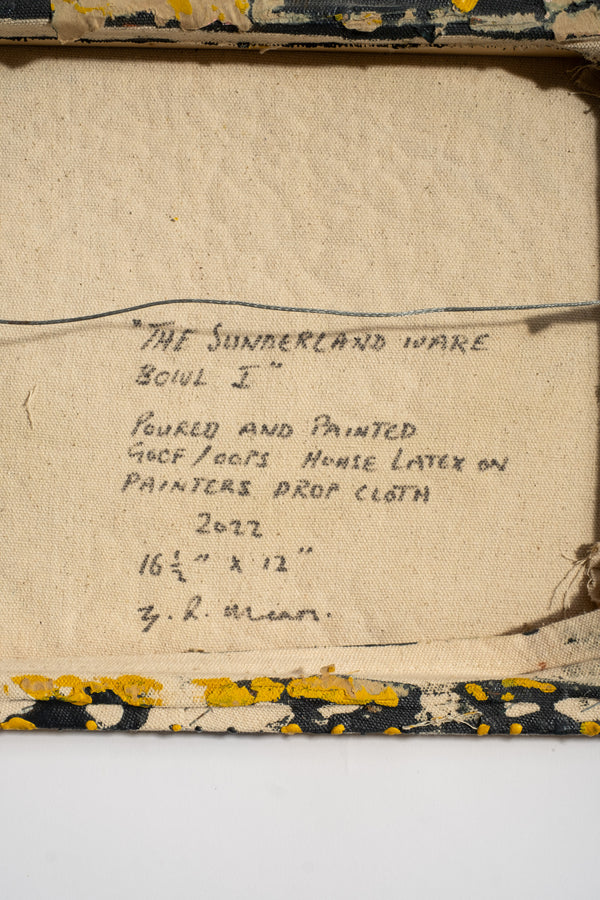 "THE SUNDERLAND WARE
BOWL I"
POURED AND PAINTED
GOOF/OOPS HOUSE LATEX ON
PAINTERS DROP CLOTH
2022
16 1/2" X 12"